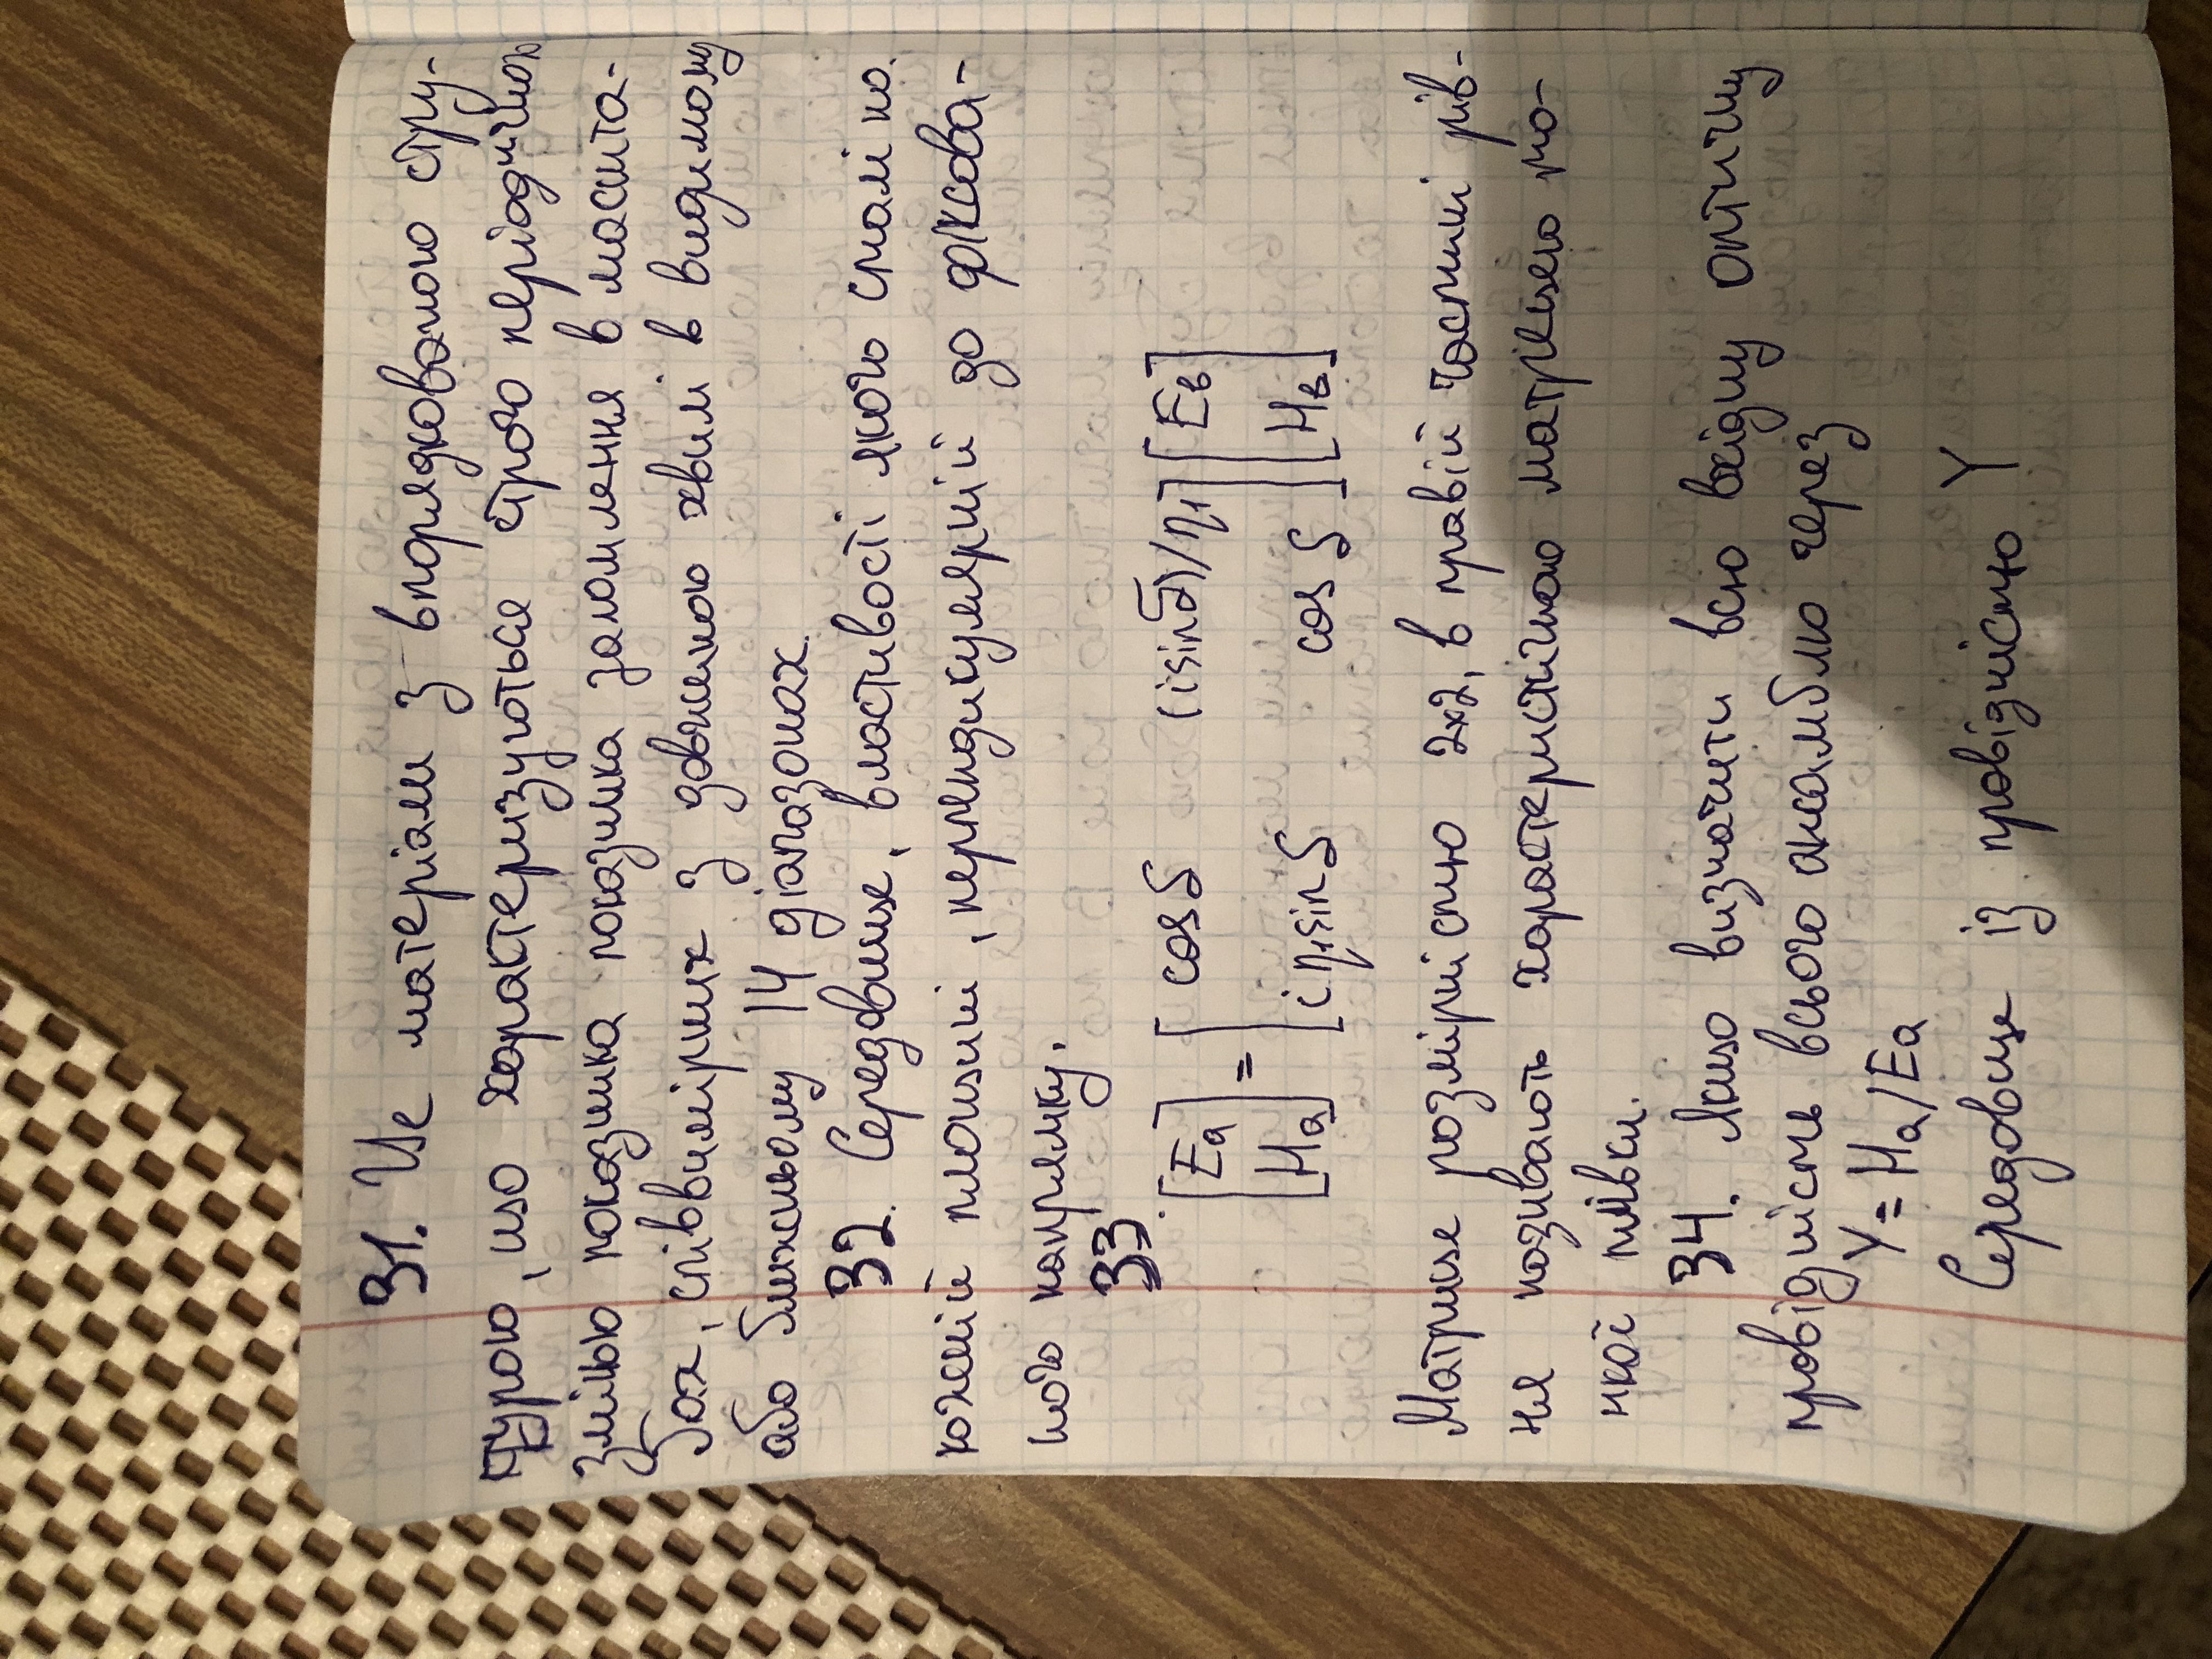 31. Це матеріали з впорядкованого стру-
ктурою, що характеризуються строго періодичною
зміною показника показника заломлення в масшта-
бах, співвимірних з довжиною хвилі в видимому
або ближньому ІЧ діапазонах.
32. Середовище, властивості якого сталі на
кожній площині, перпендикулярній до фіксова-
ного напрямку.
33.
[Ea Ha] = [cos δ (i sin δ)/η1 i η1 sin δ cos δ] [Eв Hв]
Матрице розмірністю 2x2, в правій частині рів-
ня називають характеристичною матрицею то-
нкої плівки.
34. Якщо визначити всю вхідну оптичну
провідність всього ансамблю через
Y = Ha/Ea
Середовище із провідністю Y